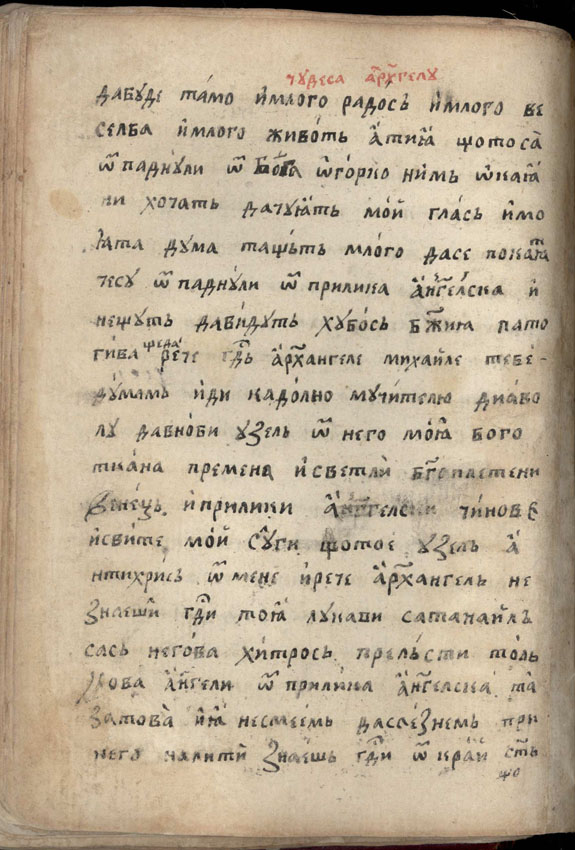 чꙋдеса а҆рх҃гелꙋ
дабꙋде та́мо и҆млого радосъ и҆млого ве
селба и҆млого живо́тъ а҆тиꙗ҆ щотоса̀
ѿ паднꙋли ѿ бо́га ѡ҆горко ни́мъ ѡ҆каꙗ҆
ни хочатъ дачꙋꙗ҆тъ мо́й гла́съ и҆мо
ꙗ҆та дꙋма ташътъ млого дасе покаꙗ҆т
тесꙋ ѿ паднꙋли ѿ прилика а҆нг҃е́лска и҆
нещꙋтъ дави́дꙋтъ хꙋбо́съ бж҃иꙗ като
гива щеда̀ ре́че гд҃ь а҆рх҃ангеле михайле тебе
дꙋмамъ и҆ди кадо́лно мꙋчи́телю диа́во
лꙋ давно́би ꙋзелъ ѿ него мо́ꙗ҆ бого
ткана премена и҆светли бг҃оплетени
венецъ и҆прилики а҆нг҃елски чи́нове
и҆сви́те мо́й слꙋги щотое ꙋзелъ а҆
нтихри́съ ѿ мене и҆рече а҆рх҃ангелъ не
ꙁнаеши гд҃и тоꙗ҆ лꙋкави сатанаи́лъ
сасъ него́ва хи́тросъ прелъсти толь
кова а҆нг҃ели ѿ прили́ка а҆нг҃елска та̀
ꙁатова̀ и҆ꙗ҆ несмеемъ даслеꙁнемъ при
него налитѝ ꙁна́ешь гд҃и ѿ кра́й стъ
що